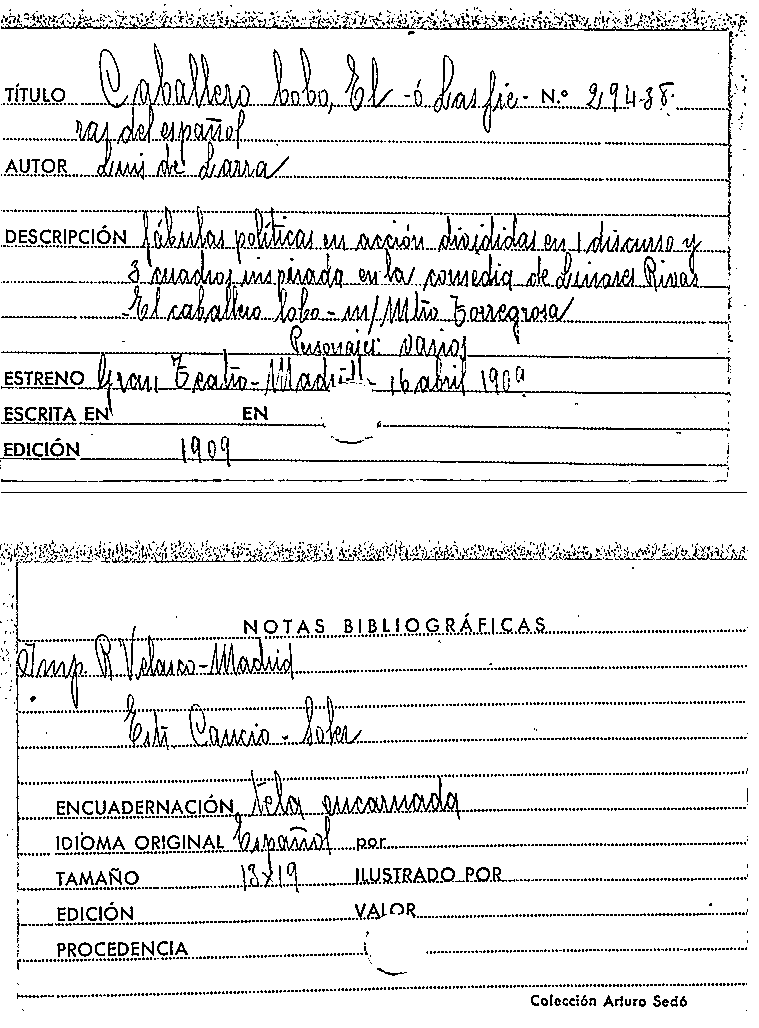 TÍTULO Caballero lobo, El - ó Las fie- N.º 29438.
ras del español
AUTOR Luis de Larra
DESCRIPCIÓN fábulas políticas en acción divididas en 1 discurso y
3 cuadros inspirada en la comedia de Linares Rivas
El caballero lobo - m/ Mtro Torregrosa
Personajes varios
ESTRENO Gran Teatro - Madrid - 16 abril 1909
ESCRITA EN EN
EDICIÓN 1909
NOTAS BIBLIOGRÁFICAS
Imp R Velasco - Madrid
Cancio - Soler
ENCUADERNACIÓN tela encarnada
IDIOMA ORIGINAL Español por
TAMAÑO 13x19 ILUSTRADO POR
EDICIÓN VALOR
PROCEDENCIA
Colección Arturo Sedó